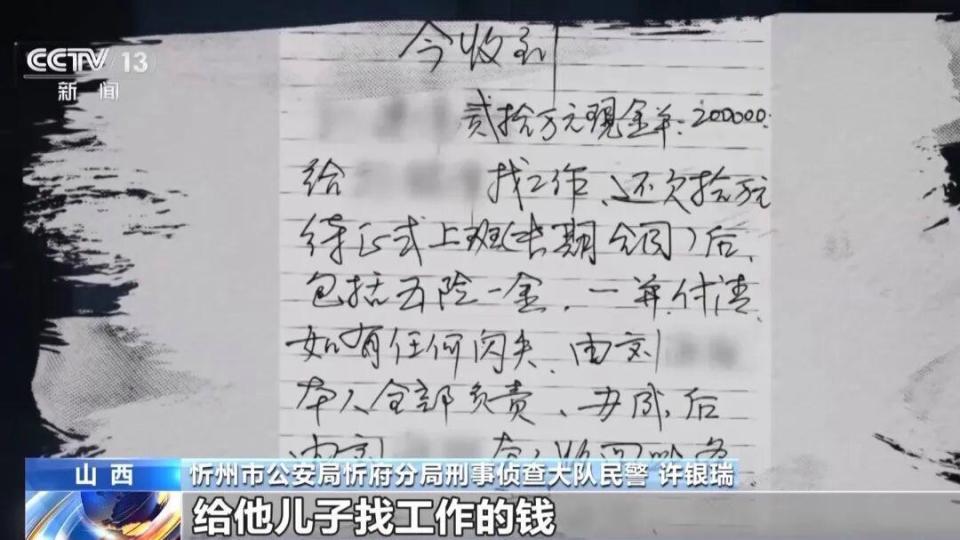 CCTV 13
新闻
今收到
贰拾万元现金羊:200000.
给 找工作、还欠拾万元
待正式上班(长期合同)后,
包括五险一金,一并付清,
如有任何闪失,由刘
本人全部负责、办成后
由刘
山西 忻州市公安局忻府分局刑事侦查大队民警 许银瑞
给他儿子找工作的钱